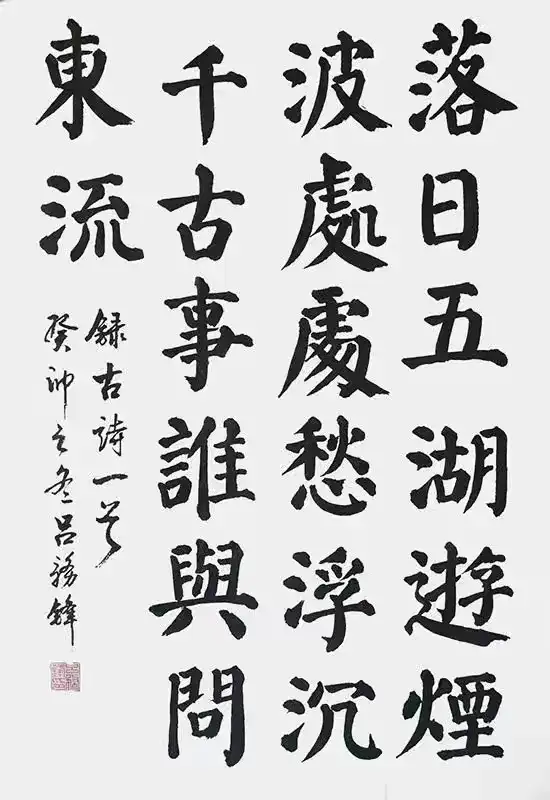 落日五湖遊煙
波處處愁浮沉
千古事誰與問
東流
録古詩一首
癸卯之冬吕務鋒